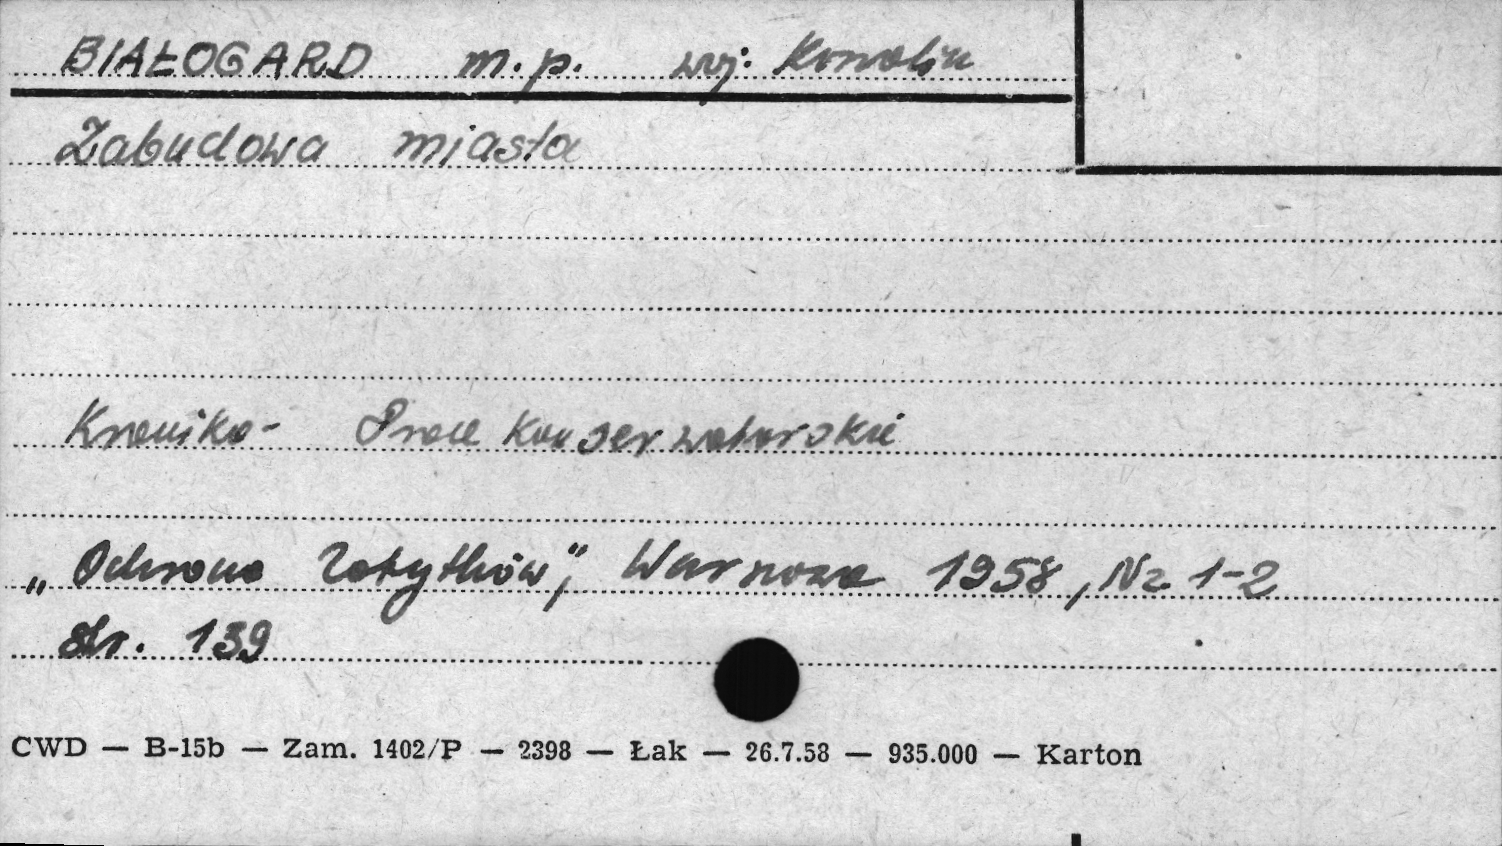 BIAŁOGARD m.p. woj. Koszalin
Zabudowa miasta
Kronika- Prace konserwatorskie
„Ochrona Zabytków”, Warszawa 1958, Nr 1-2
str. 139
CWD — B-15b — Zam. 1402/P — 2398 — Łak — 26.7.58 — 935.000 — Karton